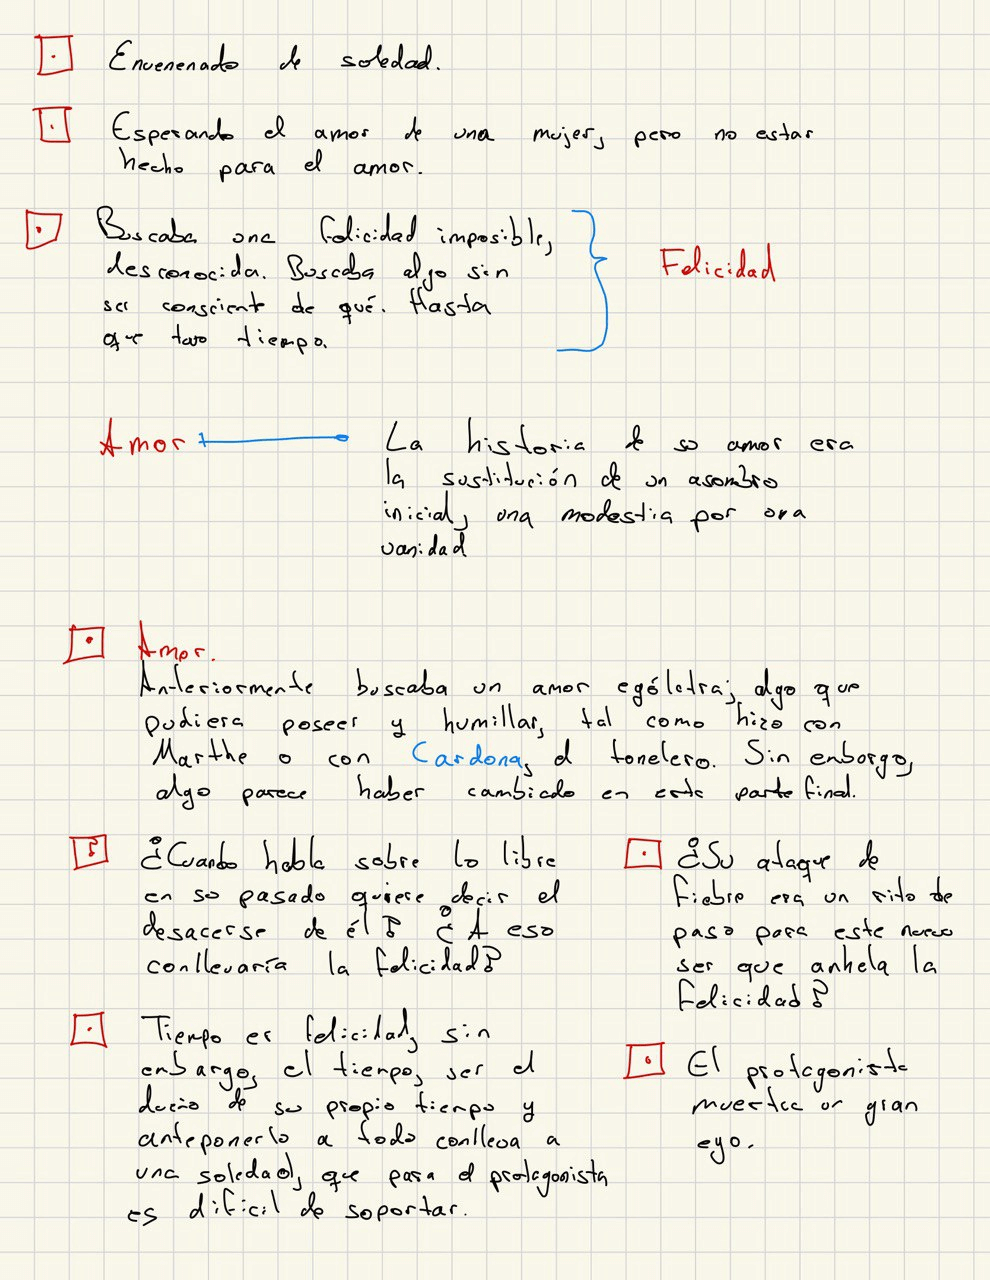 Envenenado de soledad.
Esperando el amor de una mujer, pero no estar
hecho para el amor.
Buscaba una felicidad imposible,
desconocida. Buscaba algo sin
ser consciente de qué. Hasta
que tuvo tiempo.
Felicidad
Amor
La historia de su amor era
la sustitución de un asombro
inicial, una modestia por una
vanidad
Amor.
Anteriormente buscaba un amorególatra; algo que
pudiera poseer y humillar, tal como hizo con
Marthe o con Cardona, el tonelero. Sin enborgo,
algo parece haber cambiado en esta parte final.
¿Cuando habla sobre lo libre
en so pasado quiere decir el
desacerse de él? ¿A eso
conllevaría la felicidad?
¿Su ataque de
fiebre era un rito de
paso para este nuevo
ser que anhela la
felicidad?
Tiempo es felicidad, sin
enbargo, el tiempo, ser el
dueño de su propio tiempo y
anteponerlo a todo conlleva a
una soledad, que para el protagonista
es dificil de soportar.
El protagonista
muestra un gran
ego.